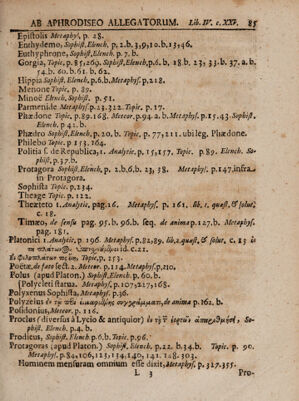 AB APHRODISEO ALLEGATORUM. Lib. IV. c. XXV. 85
Epistolis Metaphys. p. 28.
Euthydemo, Sophist. Elench. p. 2. b. 3, 9, 10. b. 13, 46.
Euthyphrone, Sophist. Elench. p. 7. b.
Gorgia, Topic. p. 85, 269. Sophist. Elench. p. 6. b. 18. b. 23, 33. b. 37. a. b.
54. b. 60. b. 61. b. 62.
Hippia Sophist. Elench. p. 6. b. Metaphys. p. 218.
Menone Topic. p. 89.
Minoë Elench. Sophist. p. 51.
Parmenide Metaph. p. 23. 312. Topic. p. 17.
Phædone Topic. p. 89. 168. Meteor. p. 94. a. b. Metaphys. p. 15. 43. Sophist.
Elench. p. 42. b.
Phædro Sophist. Elench. p. 20. b. Topic. p. 77, 211. ubi leg. Phædone.
Philebo Topic. p. 153. 164.
Politia s. de Republica, 1. Analytic. p. 15, 157. Topic. p. 89. Elench. So-
phist. p. 37. b.
Protagora Sophist. Elench. p. 2. b. 6. b. 23, 38. Metaph. p. 147. infra
in Protagora.
Sophista Topic. p. 234.
Theage Topic. p. 122.
Theæteto 1. Analytic. pag. 16. Metaphys. p. 161. lib. 1. quæst. & solut.
c. 18.
Timæo, de sensu pag. 95. b. 96. b. seq. de anima p. 127. b. Metaphys.
pag. 181.
Platonici 1. Analytic. p. 196. Metaphys. p. 82, 89. lib. 2. quæst. & solut. c. 13
id. c. 21.
Topic. p. 153.
Poëtæ, de fato sect. 2. Meteor. p. 114. Metaphys. p. 210.
Polus (apud Platon.) Sophist. Elench. p. 6. b.
[Polycleti statua. Metaphys. p. 107, 127, 168.
Polyxenus Sophista. Metaphys. p. 36.
Polyzelus de anima p. 162. b.
Posidonius, Meteor. p. 116.
Proclus (diversus à Lycio & antiquior) So-
phist. Elench. p. 4. b.
Prodicus, Sophist. Elench. p. 6. b. Topic. p. 96.
Protagoras (apud Platon.) Sophist. Elench. p. 22. b. 34. b. Topic. p. 90.
Metaphys. p. 84, 106, 123, 134, 140, 141. 148. 303.
Hominem mensuram omnium esse dixit, Metaphys. p. 327. 355.
L 3 Pro-